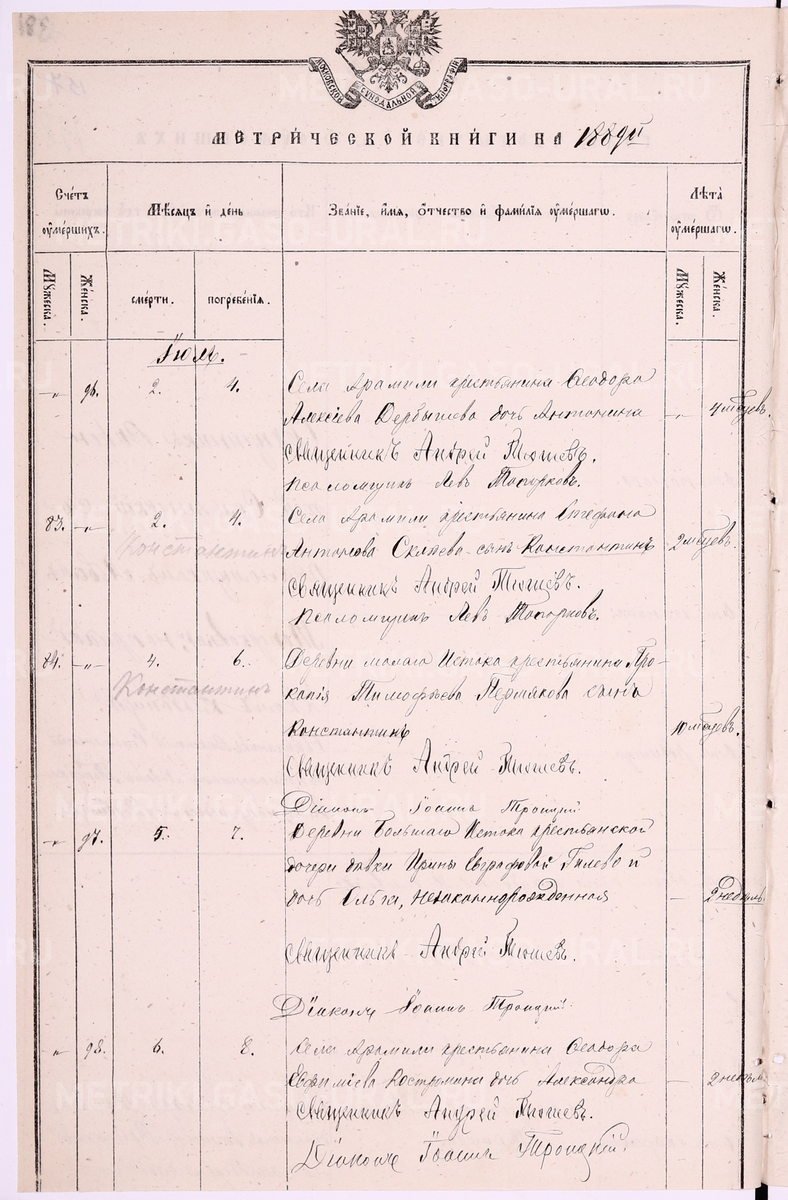 МОСКОВСКОЙ СѴНОДАЛЬНОЙ ТѴПОГРАФІИ
МЕТРИ́ЧЕСКОЙ КНИ́ГИ НА 1889й
Счетъ оумершихъ.
Мѣсяцъ и день
Званіе, имя, отчество и фамилія оумершагѡ.
Лѣта оумершагѡ.
Мꙋжеска.
Женска.
смерти.
погребенія.
Мꙋжеска.
Женска.
Іюль.
-„- 96. 2. 4. Села Арамили крестьянина Ѳеодора
Алексіева Дербышева дочь Антонина -„- 4 мѣсяцевъ.
Священникъ Андрей Тюшевъ.
Псаломщикъ Левъ Топорковъ.
83. -„- 2. 4. Села Арамили крестьянина Стефана
Константинъ
Антонова сынъ Константинъ 2 мѣсяцевъ.
Священникъ Андрей Тюшевъ.
Псаломщикъ Левъ Топорковъ.
84. -„- 4. 6. Деревни малаго Истока крестьянина Про-
Константинъ
копія Тимофѣева Пермякова сынъ
Константинъ 10 мѣсяцовъ.
Священникъ Андрей Тюшевъ.
Діаконъ Іоаннъ Троицкій
-„- 97. 5. 7. Деревни Большаго Истока крестьянской
дочери дѣвки Ирины Евграфовой Гилевой
дочь Ольга, незаконнорожденная — 2 недѣль.
Священникъ Андрей Тюшевъ.
Діаконъ Іоаннъ Троицкій.
„ 98. 6. 8. Села Арамили крестьянина Ѳеодора
Евфиміева дочь Александра — 2 недѣль.
Священникъ Андрей Тюшевъ.
Діаконъ Іоаннъ Троицкій.